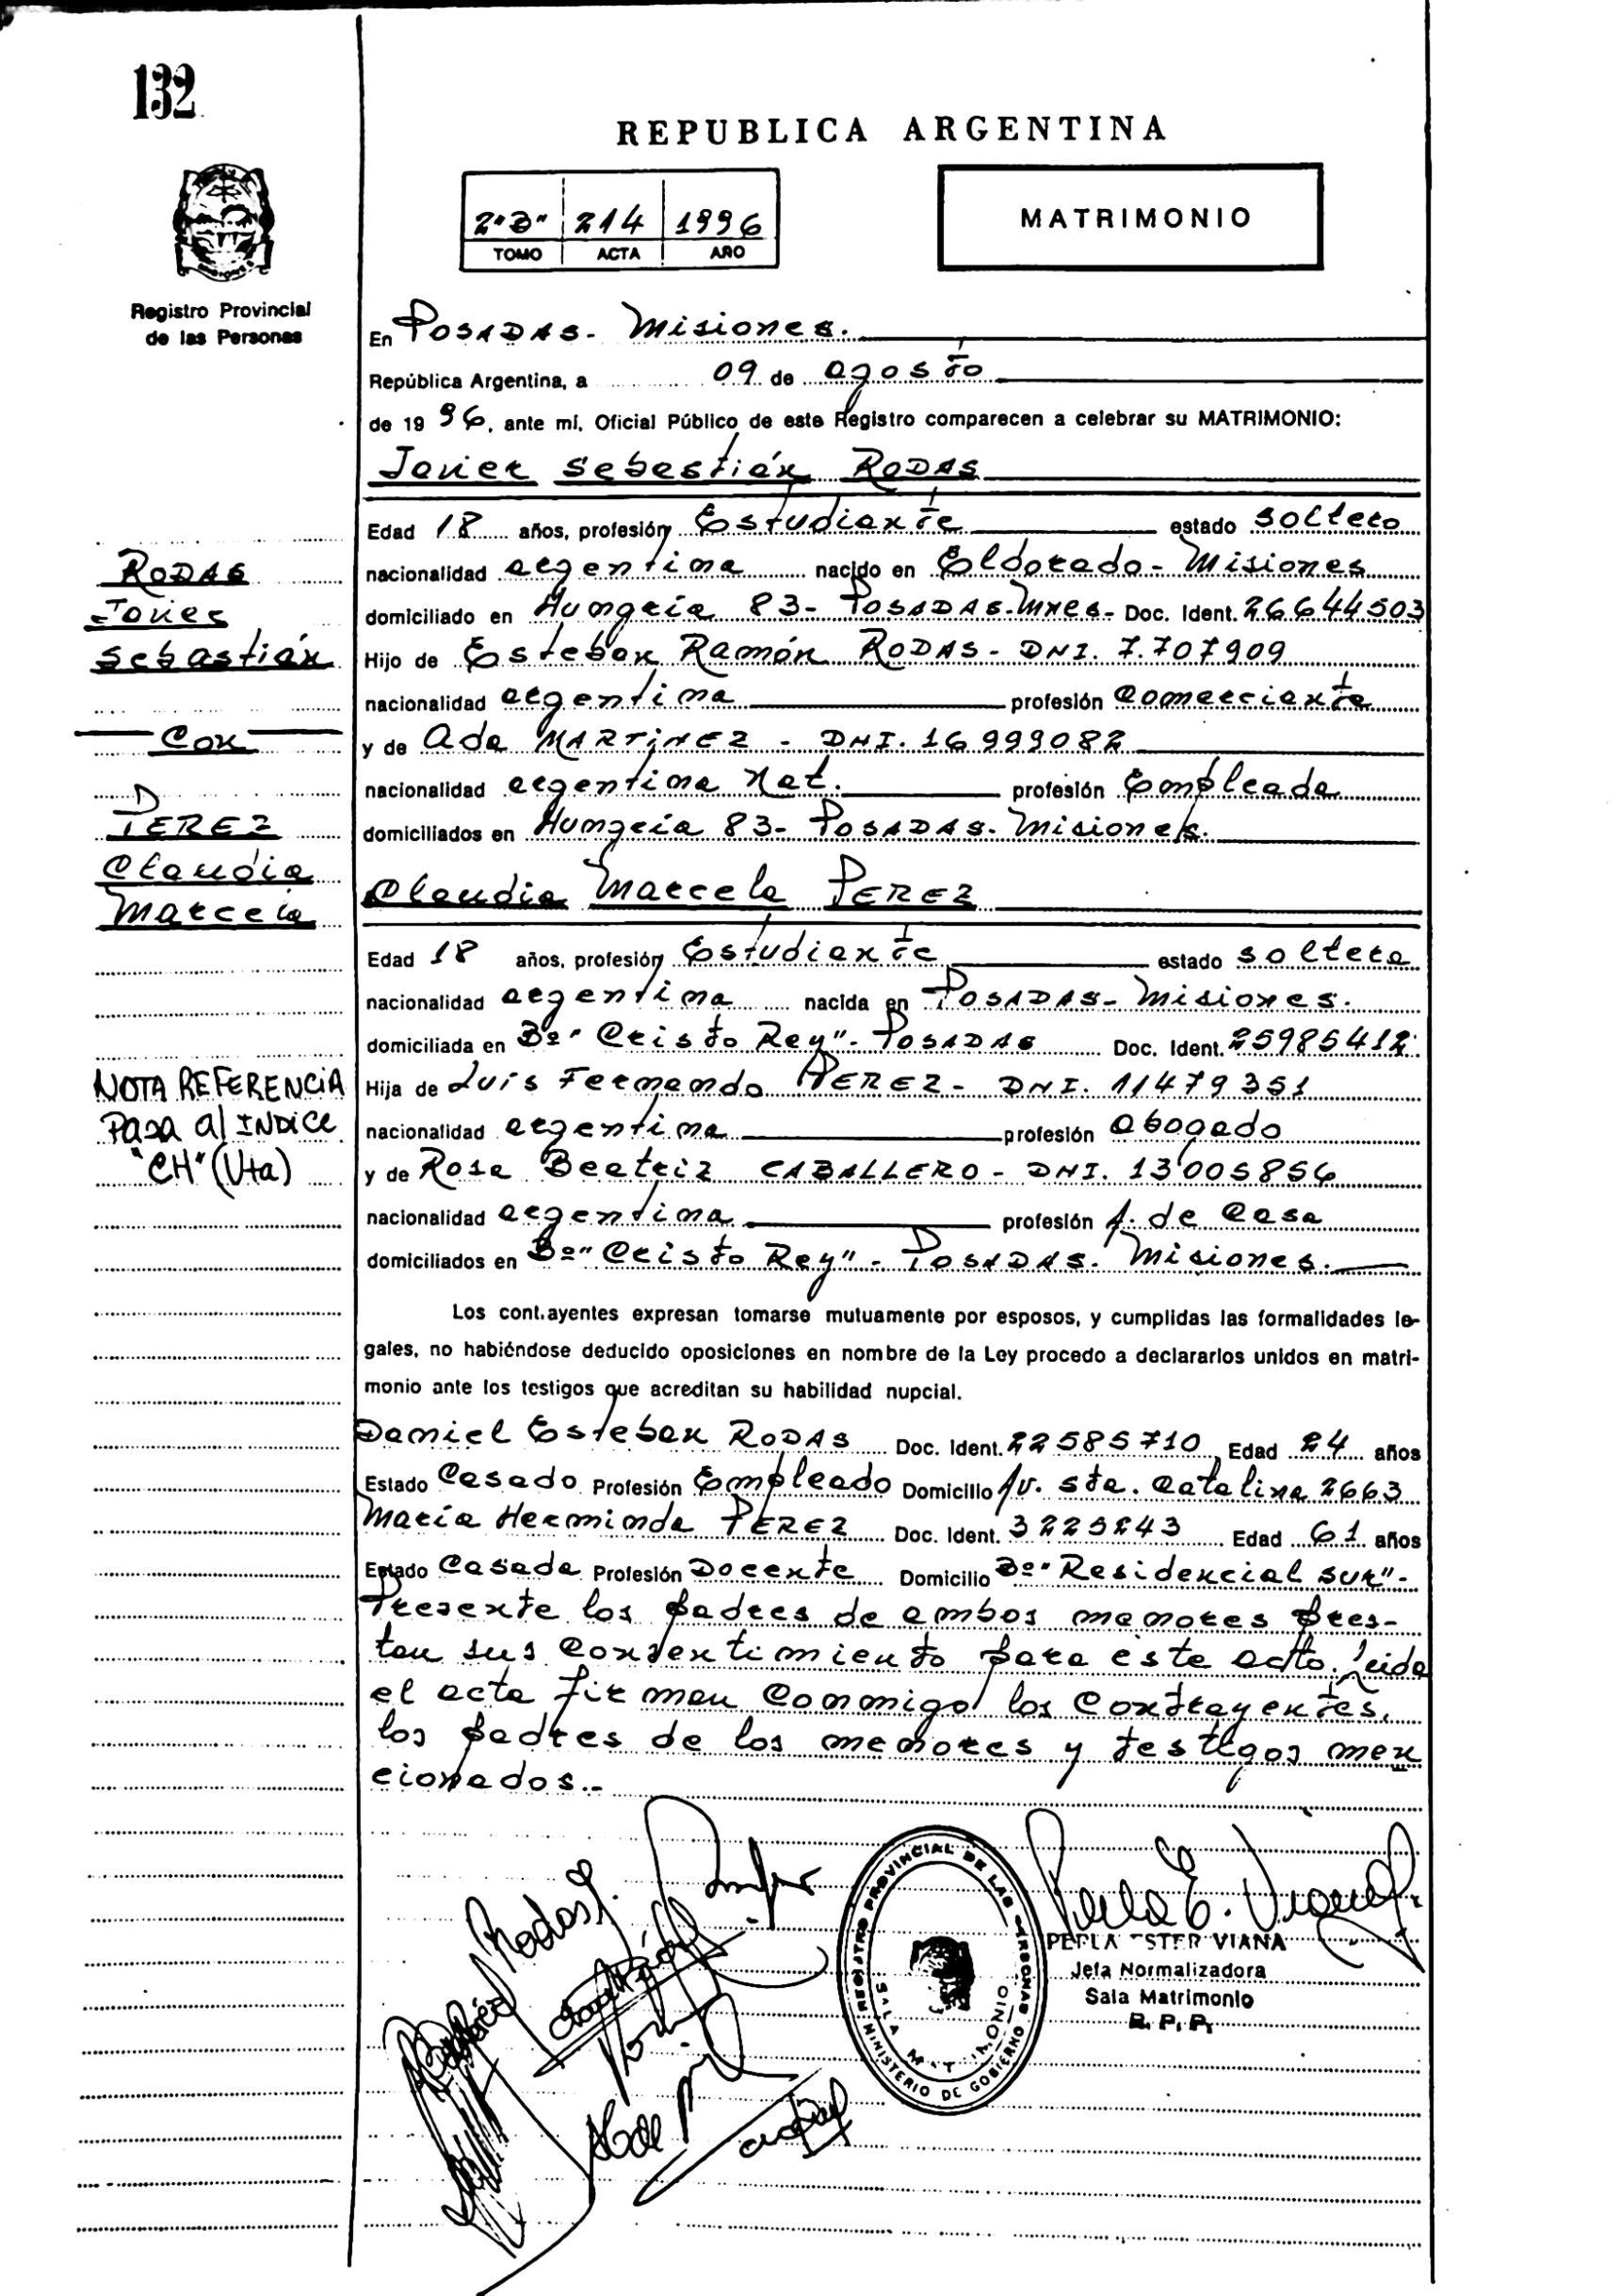 132
REPUBLICA ARGENTINA
2"B" 214 1996
TOMO ACTA AÑO
MATRIMONIO
Registro Provincial
de las Personas
En POSADAS- Misiones.
República Argentina, a 09 de agosto
de 1996, ante mí, Oficial Público de este Registro comparecen a celebrar su MATRIMONIO:
Javier Sebastián RODAS
Edad 18 años, profesión Estudiante estado soltero
nacionalidad argentina nacido en Eldorado- Misiones
domiciliado en Hungría 83- POSADAS-Mnes- Doc. Ident. 26644503
Hijo de Esteban Ramón RODAS- DNI. 7.707909
nacionalidad argentina profesión Comerciante
y de Ada MARTINEZ - DNI. 16999082
nacionalidad argentina Nat. profesión Empleada
domiciliados en Hungría 83- POSADAS- Misiones.
RODAS
Javier
Sebastián
Con
PEREZ
Claudia
Marcela
Claudia Marcela PEREZ
Edad 18 años, profesión Estudiante estado soltera
nacionalidad argentina nacida en POSADAS- Misiones.
domiciliada en Bº "Cristo Rey"- POSADAS Doc. Ident. 25985412
Hija de Luis Fernando PEREZ- DNI. 11479351
nacionalidad argentina profesión abogado
y de Rosa Beatriz CABALLERO- DNI. 13005856
nacionalidad argentina profesión A. de Casa
domiciliados en Bº "Cristo Rey"- POSADAS- Misiones.
NOTA REFERENCIA
Pasa al INDICE
"CH" (Vta)
Los cont.ayentes expresan tomarse mutuamente por esposos, y cumplidas las formalidades le-
gales, no habiéndose deducido oposiciones en nombre de la Ley procedo a declararlos unidos en matri-
monio ante los testigos que acreditan su habilidad nupcial.
Daniel Esteban RODAS Doc. Ident. 22585710 Edad 24 años
Estado Casado Profesión Empleado Domicilio Av. Sta. Catalina 2663
María Herminda PEREZ Doc. Ident. 3225243 Edad 61 años
Estado Casada Profesión Docente Domicilio Bº "Residencial Sur"-
Presente los padres de ambos menores pres-
tan sus consentimiento para éste acto. Leida
el acta firman conmigo los contrayentes,
los padres de los menores y testigos men
cionados.-
REGISTRO PROVINCIAL DE LAS PERSONAS
SALA MATRIMONIO
MINISTERIO DE GOBIERNO
Perla E. Viana
PERLA ESTER VIANA
Jefa Normalizadora
Sala Matrimonio
R. P. P.